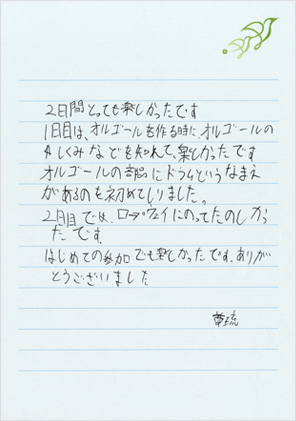 2日間とっても楽しかったです
1日目は、オルゴールを作る時に、オルゴールの
しくみなどを知れて、楽しかったです
オルゴールの部品にドラムというなまえ
があるのを初めてしりました。
2月目では、ロープウェイにのってたのしかっ
たです。
はじめての参加でも楽しかったです。ありが
とうございました